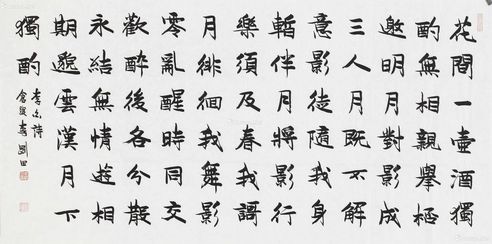 花間一壺酒獨
酌無相親舉桮
邀明月對影成
三人月既不解
意影徒隨我身
暫伴月將影行
樂須及春我謌
月徘徊我舞影
零亂醒時同交
歡醉後各分散
永結無情遊相
期邈雲漢月下
獨酌
李白詩